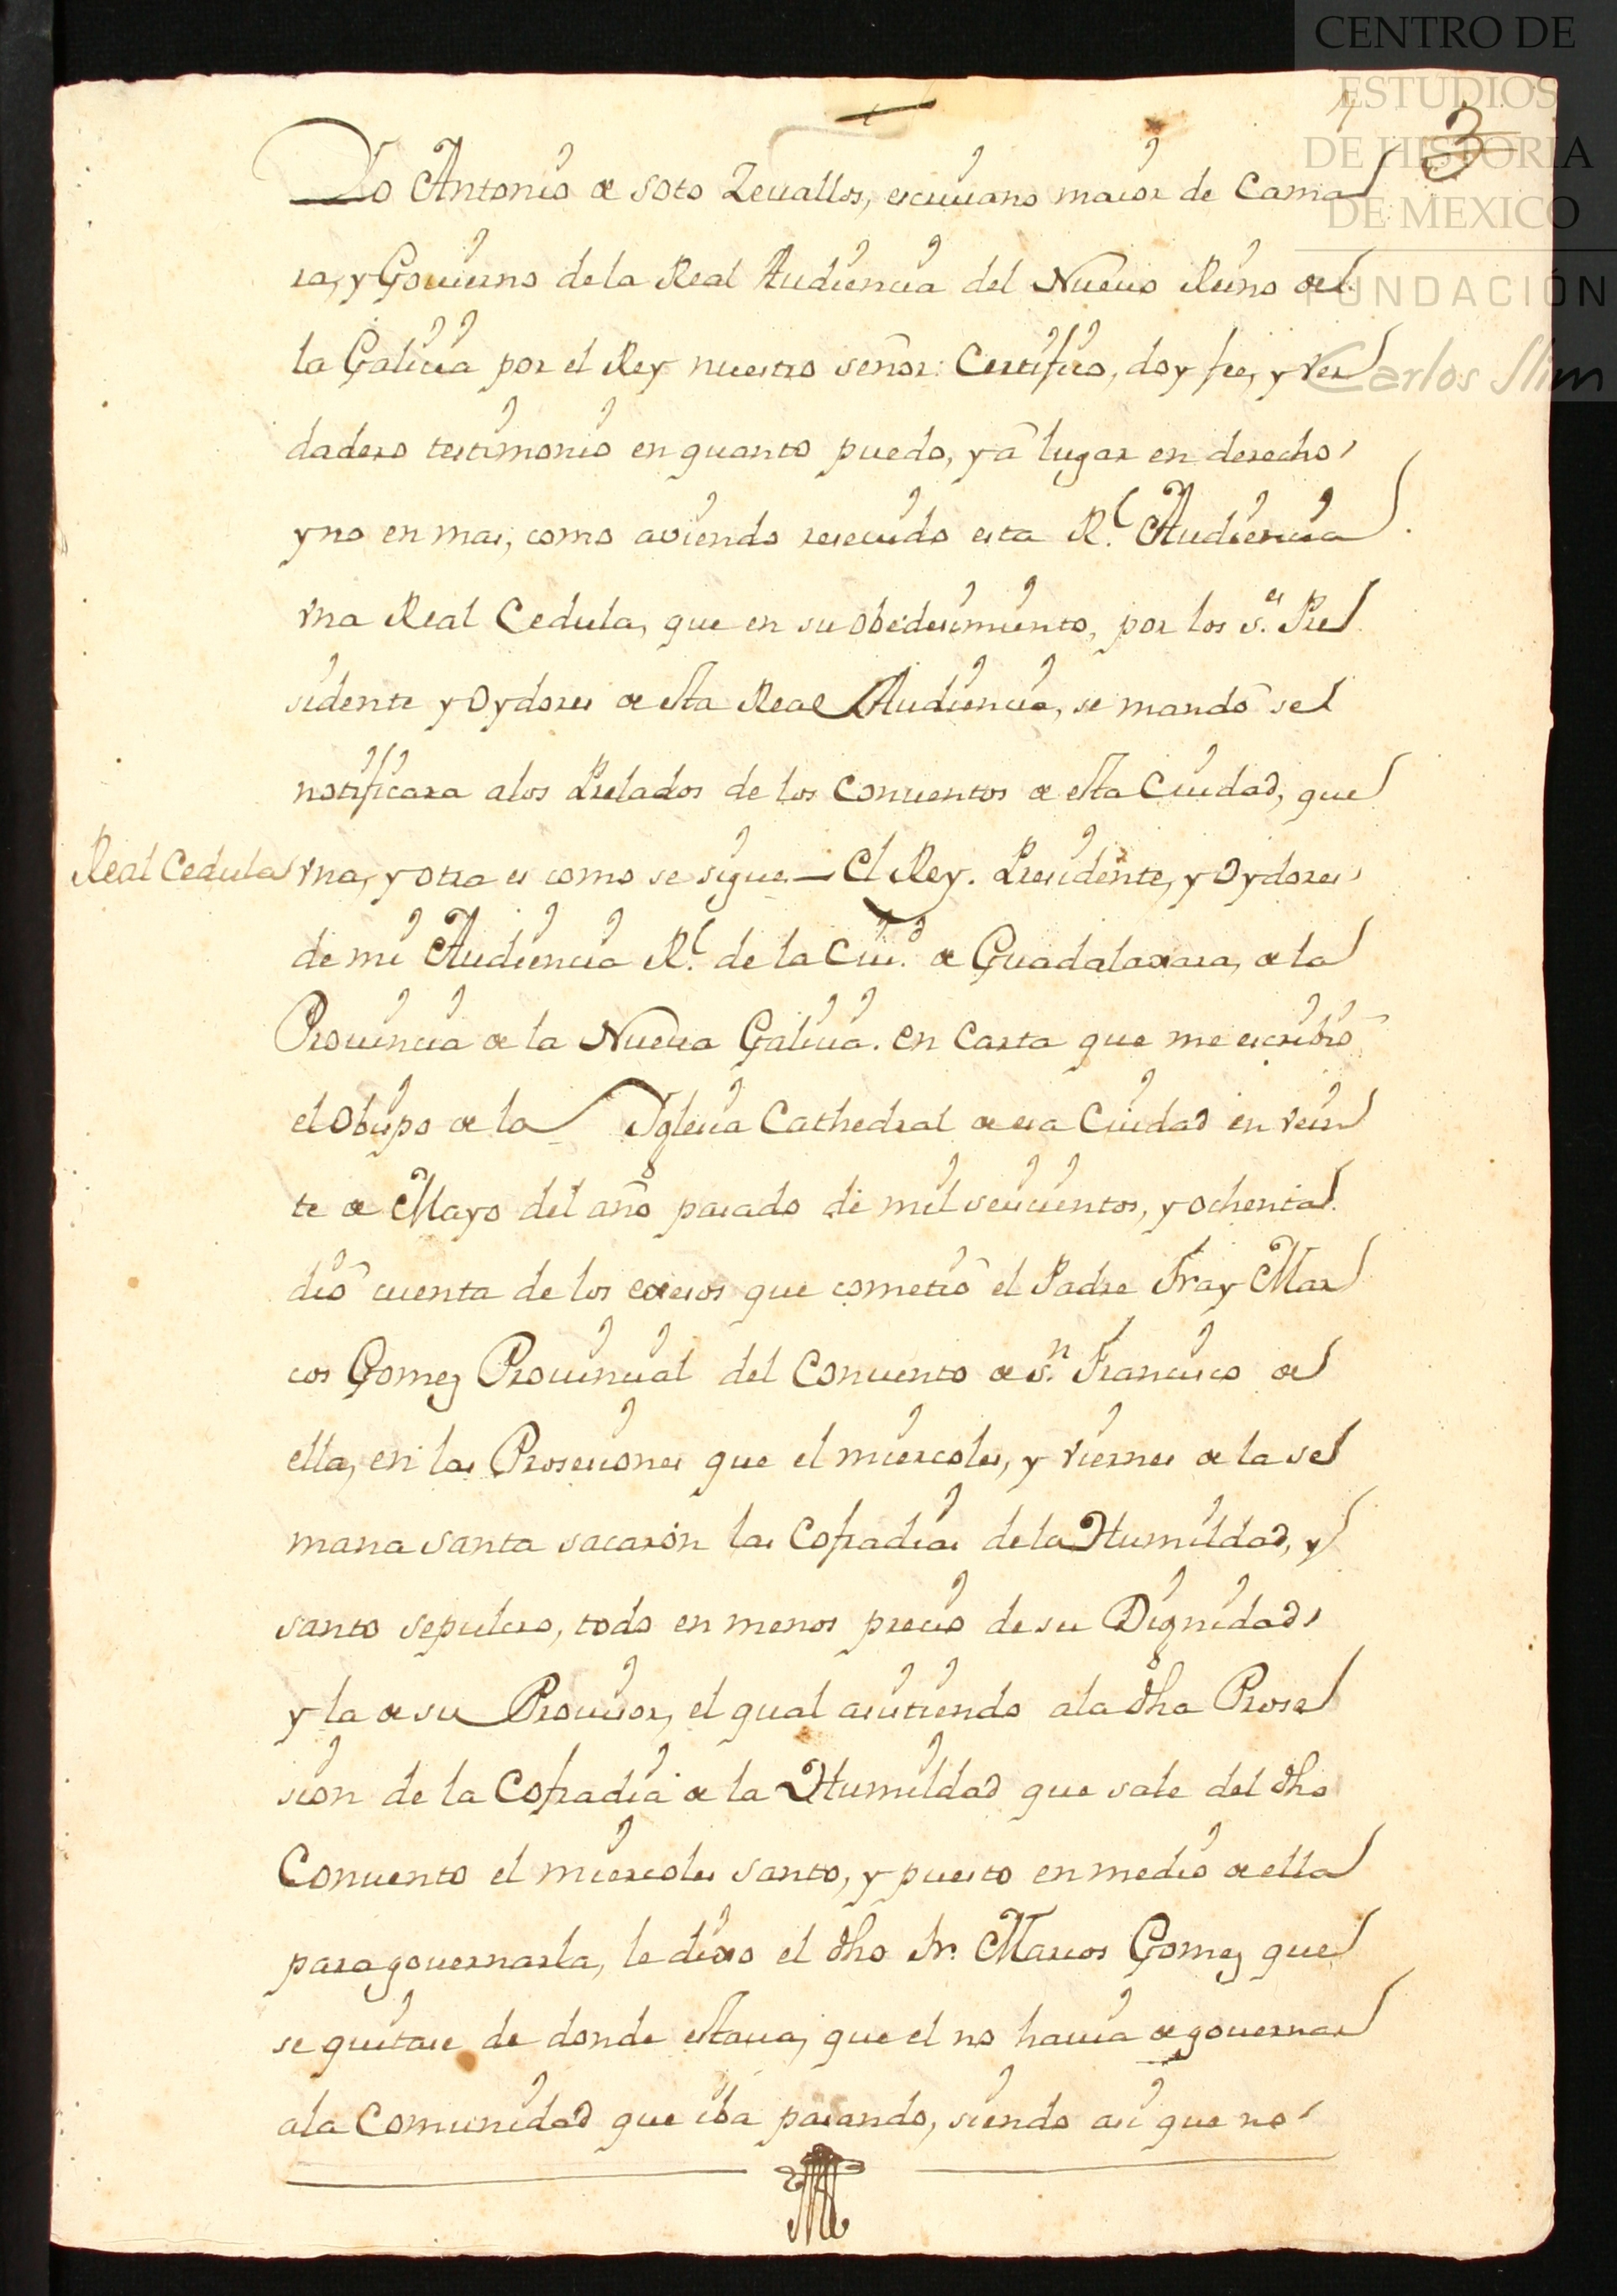 CENTRO DE
ESTUDIOS
DE HISTORIA
DE MEXICO
FUNDACIÓN
Carlos Slim
3
Yo Antonio de soto Zeuallos, escriuano maior de Cama
ra, y Gouierno de la Real Audiencia del Nueuo Reino de
la Galicia por el Rey nuestro señor: Certifico, doy fee, y ver
dadero testimonio en quanto puedo, y à lugar en derecho
y no en mas, como auiendo reseuido esta Rl. Audiencia
vna Real Cedula, que en su obedesimiento, por los s.es Pre
sidente y Oydores de esta Real Audiencia, se mandò se
notificara a los Prelados de los Conuentos de esta Ciudad, que
Real Cedula
vna, y otra es como se sigue — El Rey. Presidente, y Oydores
de mi Audiencia Rl. de la Ciu.d de Guadalaxara, de la
Prouincia de la Nueua Galicia. en Carta que me escribiò
el Obispo de la Iglesia Cathedral de esa Ciudad en vein
te de Mayo del año pasado de mil seiscientos, y ochenta
diò cuenta de los exesos que cometiò el Padre Fray Mar
cos Gomez Prouincial del Conuento de s.n Francisco de
ella, en las Prosesiones que el miercoles, y viernes de la se
mana santa sacaron las Cofradias de la Humildad, y
santo sepulcro, todo en menos precio de su Dignidad
y la de su Prouisor, el qual asistiendo a la dha Prose
sion de la Cofradia de la Humildad que sale del dho
Conuento el miercoles santo, y puesto en medio de ella
para gouernarla, le dixo el dho Fr. Marcos Gomez que
se quitase de donde estaua, que el no hauia de gouernar
a la Comunidad que iba pasando, siendo asi que no